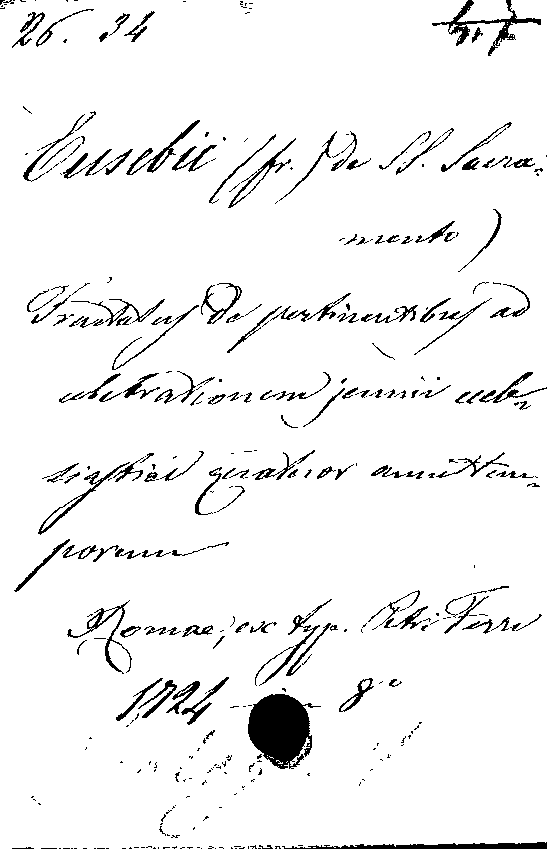 26. 34
Eusebii (fr.) de SS. Sacra-
mento)
Tractatus de pertinentibus ad
celebrationem jejunii eccle-
siastici quatuor anni tem-
porum
Romae, ex typ. Petri Ferri
1724 — in 8°